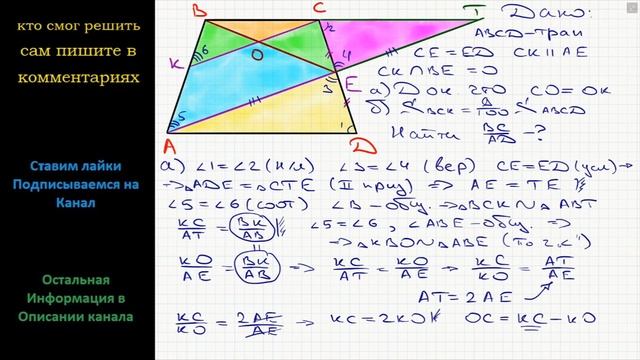 кто смог решить
сам пишите в
комментариях
Ставим лайки
Подписываемся на
Канал
Остальная
Информация в
Описании канала
B C T
K O E
A D
6 2 4 3 5 1
Дано:
ABCD-трап
CE=ED CK||AE
CK∩BE=O
а) Док что CO=OK
б) S BCK = /100 S ABCD
Найти BC/AD -?
а) ∠1=∠2 (н/л) ∠3=∠4 (вер) CE=ED (усл) →
⇒ △ADE=△CTE (II приз) ⇒ AE=TE
∠5=∠6 (соот) ∠B-общ. ⇒ △BCK∾△ABT
KC/AT = BK/AB ∠5=∠6, ∠ABE-общ. ⇒
⇒ △KBO∾△ABE (по 2 ∠)
KO/AE = BK/AB ⇒ KC/AT = KO/AE ⇒ KC/KO = AT/AE
AT=2AE
KC/KO = 2AE/AE ⇒ KC=2KO OC=KC-KO